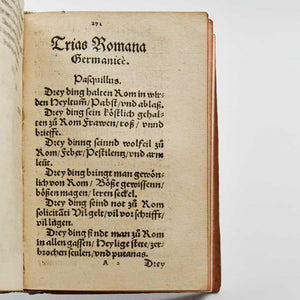 271
Trias Romana
Germanicè.
Pasquillus.
Drey ding halten Rom in wir-
den Heyltum/ Pabst/ vnd ablaß.
Drey ding sein köstlich gehal-
ten zů Rom Frawen/ roß/ vnnd
brieffe.
Drey dinng seinnd wolfeil zů
Rom/ Feber/ Pestilentz/ vnd arm
leüt.
Drey ding bringt man gewön-
lich von Rom/ Böße gewissenn/
bößen magen/ leren seckel.
Drey ding seind not zů Rom
solicitâti Vil gelt/ vil vorschrifft/
vil lügen.
Drey ding findt man zů Rom
in allen gassen/ Heylige stete/ zer-
brochen seulen/ vnd putanas.
A 2 Drey